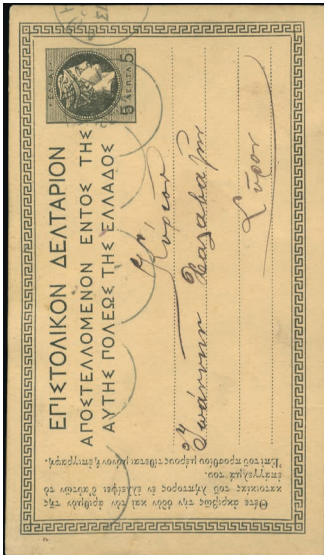 ΕΠΙΣΤΟΛΙΚΟΝ ΔΕΛΤΑΡΙΟΝ
ΑΠΟΣΤΕΛΛΟΜΕΝΟΝ ΕΝΤΟΣ ΤΗΣ
ΑΥΤΗΣ ΠΟΛΕΩΣ ΤΗΣ ΕΛΛΑΔΟΣ
5 ΛΕΠΤΑ 5
Κύριον
Ἰωάννην
Σύρον
Θέτε ἀκριβῶς τὴν ὁδὸν καὶ τὸν ἀριθμὸν τῆς
κατοικίας τοῦ λήπτορος ἐν ἐλλείψει δ'αὐτῶν τὸ
ἐπάγγελμά του.
Ἐπὶ τοῦ προσθίου μέρους τίθεται μόνον ἡ ἐπιγραφή.